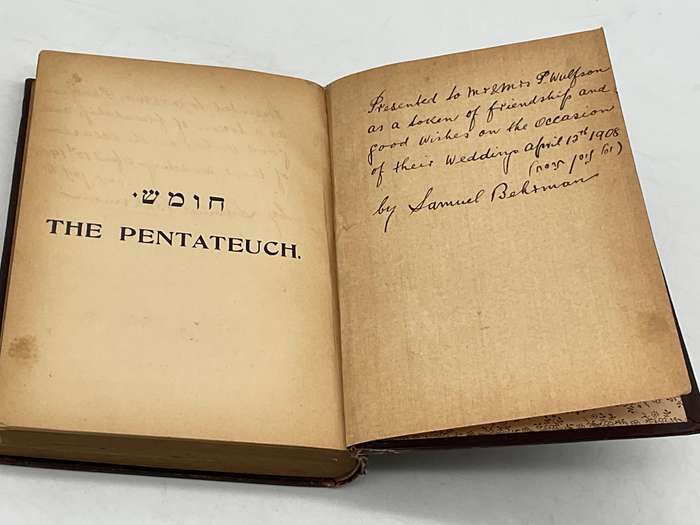 חומש.
THE PENTATEUCH.
Presented to Mr & Mrs P Wulfson
as a token of friendship and
good wishes on the occasion
of their Wedding April 12th 1908
ניסן תרסח)
by Samuel Behrman